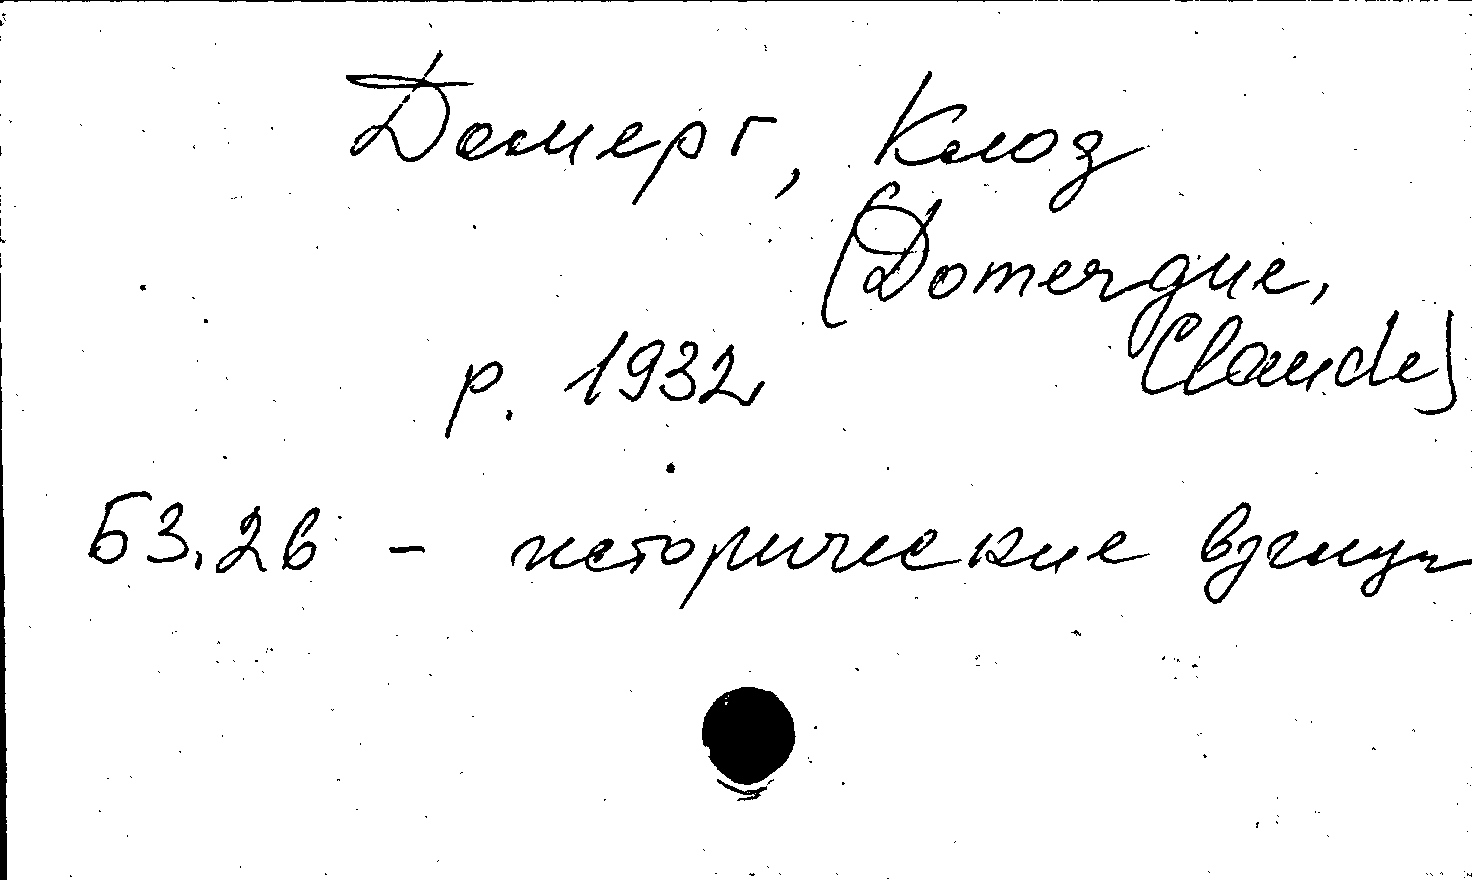 Домерг, Клод
(Domergue,
Claude)
р. 1932
Б3.2в - исторические взгляды